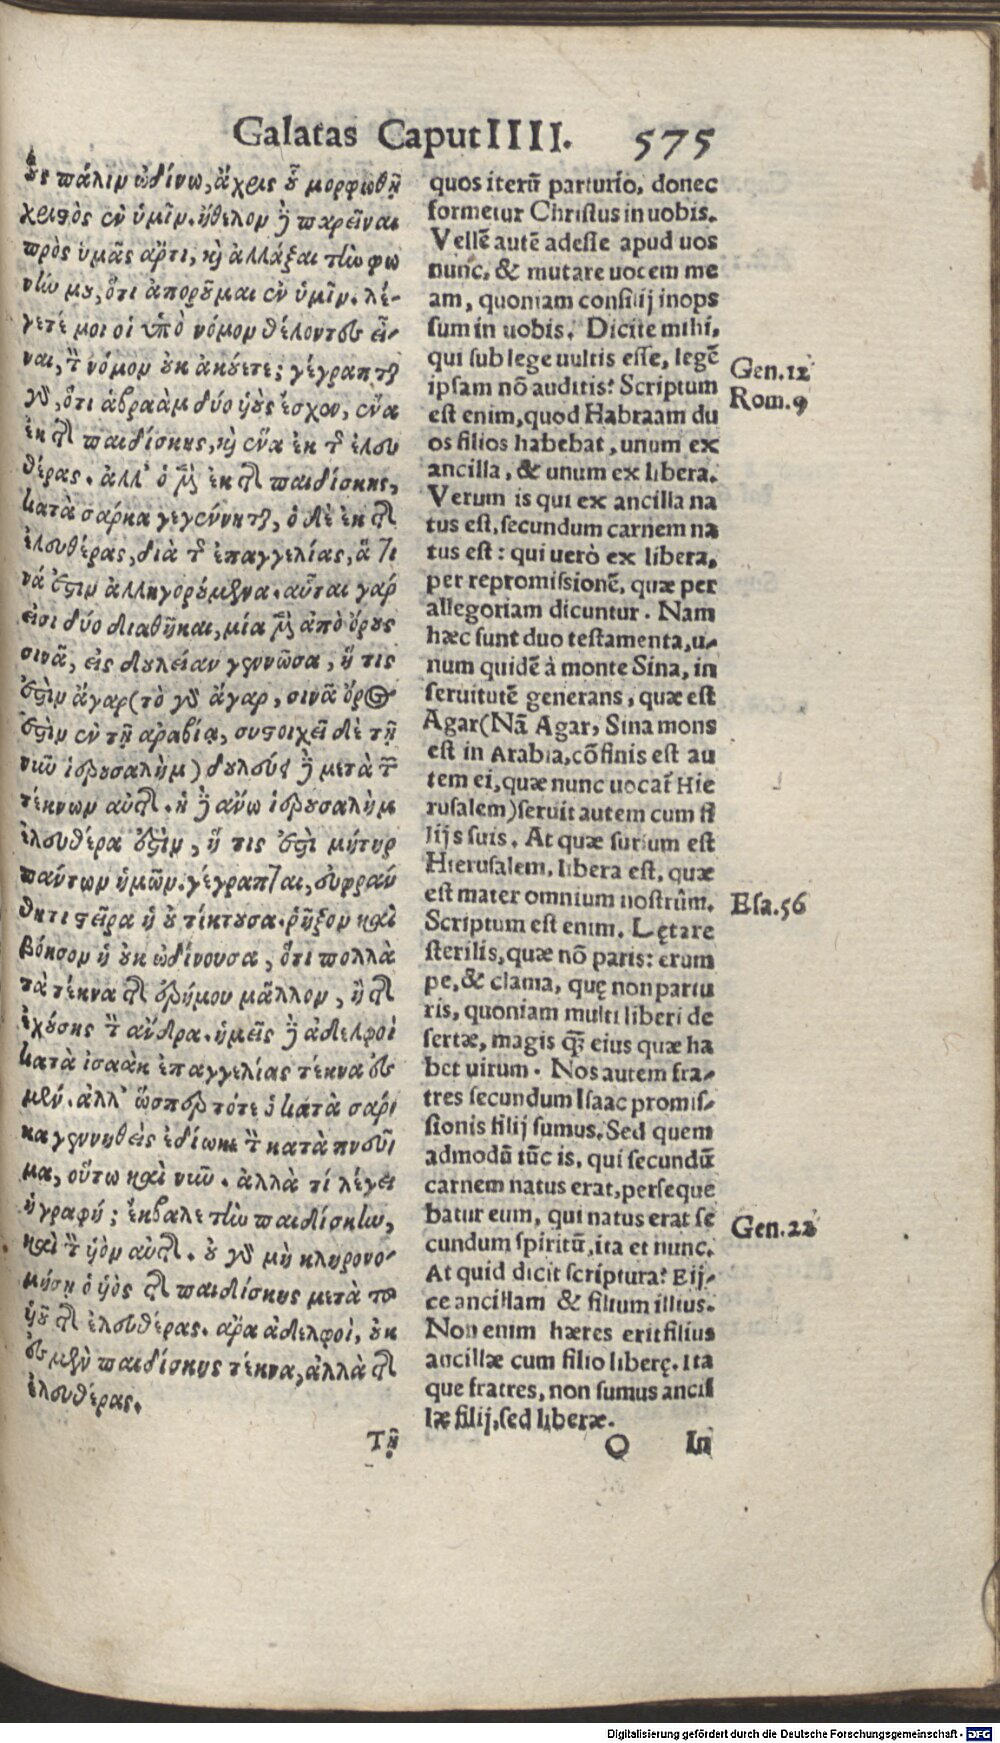 Galatas Caput IIII. 575
οὓς πάλιν ὠδίνω, ἄχρις οὗ μορφωθῇ
χριστὸς ἐν ὑμῖν. ἤθελον δὲ παρεῖναι
πρὸς ὑμᾶς ἄρτι, καὶ ἀλλάξαι τὴν φω
νήν μου, ὅτι ἀποροῦμαι ἐν ὑμῖν. λέ-
γετέ μοι οἱ ὑπὸ νόμον θέλοντες εἶ-
ναι, τὸν νόμον οὐκ ἀκούετε; γέγραπται
γὰρ, ὅτι ἀβραὰμ δύο υἱοὺς ἔσχον, ἕνα
ἐκ τῆς παιδίσκης, καὶ ἕνα ἐκ τῆς ἐλευ
θέρας. ἀλλ' ὁ μὲν ἐκ τῆς παιδίσκης,
κατὰ σάρκα γεγέννηται, ὁ δὲ ἐκ τῆς
ἐλευθέρας, διὰ τῆς ἐπαγγελίας, ἅ τι
νά ἐστιν ἀλληγορούμενα. αὗται γάρ
εἰσι δύο διαθῆκαι, μία μὲν ἀπὸ ὄρους
σινᾶ, εἰς δουλείαν γεννῶσα, ἥ τις
ἐστὶν ἄγαρ (τὸ γὰρ ἄγαρ, σινᾶ ὄρος
ἐστὶν ἐν τῇ ἀραβίᾳ, συστοιχεῖ δὲ τῇ
νῦν ἱερουσαλὴμ) δουλεύει δὲ μετὰ τῶν
τέκνων αὐτῆς. ἡ δὲ ἄνω ἱερουσαλὴμ
ἐλευθέρα ἐστὶν, ἥ τις ἐστὶ μήτηρ
πάντων ἡμῶν. γέγραπται, εὐφράν
θητι στεῖρα ἡ οὐ τίκτουσα. ῥῆξον καὶ
βόησον ἡ οὐκ ὠδίνουσα, ὅτι πολλὰ
τὰ τέκνα τῆς ἐρήμου μᾶλλον, ἢ τῆς
ἐχούσης τὸν ἄνδρα. ἡμεῖς δὲ ἀδελφοὶ
κατὰ ἰσαὰκ ἐπαγγελίας τέκνα ἐσ
μέν. ἀλλ' ὥσπερ τότε ὁ κατὰ σάρ
κα γεννηθεὶς ἐδίωκε τὸν κατὰ πνεῦ
μα, οὕτω καὶ νῦν. ἀλλὰ τί λέγει
ἡ γραφή; ἔκβαλε τὴν παιδίσκην,
καὶ τὸν υἱὸν αὐτῆς. οὐ γὰρ μὴ κληρονο-
μήσῃ ὁ υἱὸς τῆς παιδίσκης μετὰ τοῦ
υἱοῦ τῆς ἐλευθέρας. ἄρα ἀδελφοὶ, οὐκ
ἐσμὲν παιδίσκης τέκνα, ἀλλὰ τῆς
ἐλευθέρας.
Τῇ
quos iterū parturio, donec
formetur Christus in uobis.
Vellē autē adesse apud uos
nunc, & mutare uocem me
am, quoniam consilij inops
sum in uobis. Dicite mihi,
qui sub lege uultis esse, legē
ipsam nō auditis? Scriptum
est enim, quod Habraam du
os filios habebat, unum ex
ancilla, & unum ex libera.
Verum is qui ex ancilla na
tus est, secundum carnem na
tus est: qui uerò ex libera,
per repromissionē, quæ per
allegoriam dicuntur. Nam
hæc sunt duo testamenta, u-
num quidē à monte Sina, in
seruitutē generans, quæ est
Agar (Nā Agar, Sina mons
est in Arabia, cōfinis est au
tem ei, quæ nunc uocat̃ Hie
rusalem) seruit autem cum fi
lijs suis. At quæ sursum est
Hierusalem, libera est, quæ
est mater omnium nostrûm.
Scriptum est enim. Lętare
sterilis, quæ nō paris: erum
pe, & clama, quę non partu
ris, quoniam multi liberi de
sertæ, magis q̃ꝫ eius quæ ha
bet uirum. Nos autem fra-
tres secundum Isaac promis-
sionis filij sumus. Sed quem
admodū tūc is, qui secundū
carnem natus erat, perseque
batur eum, qui natus erat se
cundum spiritū, ita et nunc.
At quid dicit scriptura? Eij-
ce ancillam & filium illius.
Non enim hæres erit filius
ancillæ cum filio liberę. Ita
que fratres, non sumus ancil
læ filij, sed liberæ.
O In
Gen.12
Rom.9
Esa.56
Gen.22
Digitalisierung gefördert durch die Deutsche Forschungsgemeinschaft - DFG